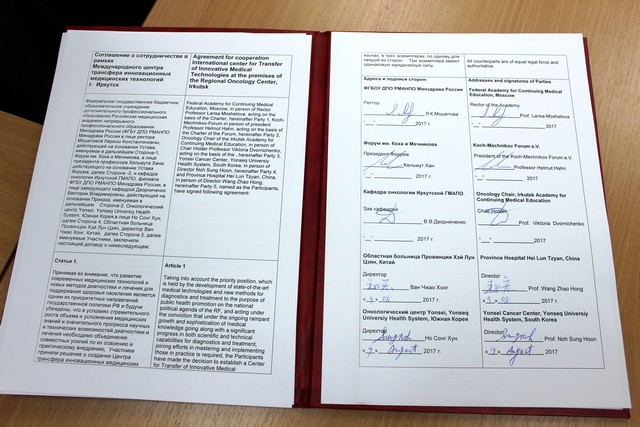 Соглашение о сотрудничестве в
рамках
Международного центра
трансфера инновационных
медицинских технологий
г. Иркутск
Федеральное государственное бюджетное
образовательное учреждение
дополнительного профессионального
образования Российская медицинская
академия непрерывного
профессионального образования
Минздрава России (ФГБОУ ДПО РМАНПО
Минздрава России в лице ректора
Мошетовой Ларисы Константиновны,
действующей на основании Устава,
именуемое в дальнейшем Сторона 1,
Форум им. Коха и Мечникова, в лице
президента профессора Хельмута Хана,
действующего на основании Устава
Форума, далее Сторона -2, и кафедра
онкологии Иркутской ГМАПО, филиала
ФГБУ ДПО РМАНПО Минздрава России, в
лице заведующего кафедрой Дворниченко
Виктории Владимировны, действующей на
основании Приказа, именуемая в
дальнейшем Сторона-3, Онкологический
центр Yonsei, Yonseq University Health
System, Южная Корея в лице Но Сонг Хун,
далее Сторона 4, Областная больница
Провинции Хэй Лун Цзян, директор Ван
Чжао Хонг, Китай, далее Сторона 5, далее
именуемые Участники, заключили
настоящий договор о нижеследующем:
Статья 1.
Принимая во внимание, что развитие
современных медицинских технологий и
новых методов диагностики и лечения для
поддержания здоровья населения является
одним из приоритетных направлений
государственной политики РФ и будучи
убеждены, что в условиях стремительного
роста объема и усложнения медицинских
знаний и значительного прогресса научных
и технических возможностей диагностики и
лечения необходимо объединение
совместных усилий по их освоению и
практическому внедрению, Участники
приняли решение о создании Центра
трансфера инновационных медицинских
Agreement for cooperation
International center for Transfer
of Innovative Medical
Technologies at the premises of
the Regional Oncology Center,
Irkutsk
Federal Academy for Continuing Medical
Education, Moscow, in person of Rector
Professor Larisa Moshetova, acting on the
basis of the Charter, hereinafter Party 1, Koch-
Mechnikov-Forum in person of president
Professor Helmut Hahn, acting on the basis of
the Charter of the Forum, hereinafter Party 2,
Oncology Chair, Irkutsk Academy for Continuing
Medical Education, in person of
Chair Holder Professor Viktoria Dvornichenko,
acting on the basis of the , hereinafter Party 3,
Yonsei Cancer Center, Yonseq University
Health System, South Korea, in person of
Director Noh Sung Hoon, hereinafter Party 4,
and Province Hospital Hei Lun Tzyan, China,
in person of Director Wang Zhao Hong,
hereinafter Party 5, named as the Participants,
have signed following agreement:
Article 1
Taking into account the priority position, which
is held by the development of state-of-the-art
medical technologies and new methods for
diagnostics and treatment to the purpose of
public health promotion on the national
political agenda of the RF, and acting under
the conviction that under the ongoing rampant
growth and sophistication of medical
knowledge going along with a significant
progress in both scientific and technical
capabilities for diagnostics and treatment,
joining efforts in mastering and implementing
those in practice is required, the Participants
have made the decision to establish a Center
for Transfer of Innovative Medical
языках, в трех экземплярах, по одному для
каждой из сторон. Три экземпляра имеют
одинаковую юридическую силу.
All counterparts are of equal legal force and
authoritative.
Адреса и подписи сторон:
Addresses and signatures of Parties
ФГБОУ ДПО РМАНПО Минздрава России
Federal Academy for Continuing Medical
Education, Moscow
Ректор
Rector of the Academy
П.К.Мошетова
Prof. Larisa Moshetova
2017 г.
2017
Форум им. Коха и Мечникова
Koch-Mechnikov Forum e.V.
Президент Форума
President of the Koch-Mechnikov Forum e.V.
Хельмут Хан
Professor Helmut Hahn
2017 г.
2017
Кафедра онкологии Иркутской ГМАПО
Oncology Chair, Irkutsk Academy for
Continuing Medical Education
Зав. кафедрой
Chair Holder
В.В.Дворниченко
Prof. Viktoria Dvornichenko
2017 г.
2017
Областная больница Провинции Хэй Лун
Цзян, Китай
Province Hospital Hei Lun Tzyan, China
Директор
Director
Ван Чжао Хонг
Prof. Wang Zhao Hong
2017 г.
2017
Онкологический центр Yonsei, Yonseq
University Health System, Южная Корея
Yonsei Cancer Center, Yonseq University
Health System, South Korea
Директор
Director
Но Сонг Хун
Prof. Noh Sung Hoon
« 9 » August 2017 г.
« 9 » August 2017